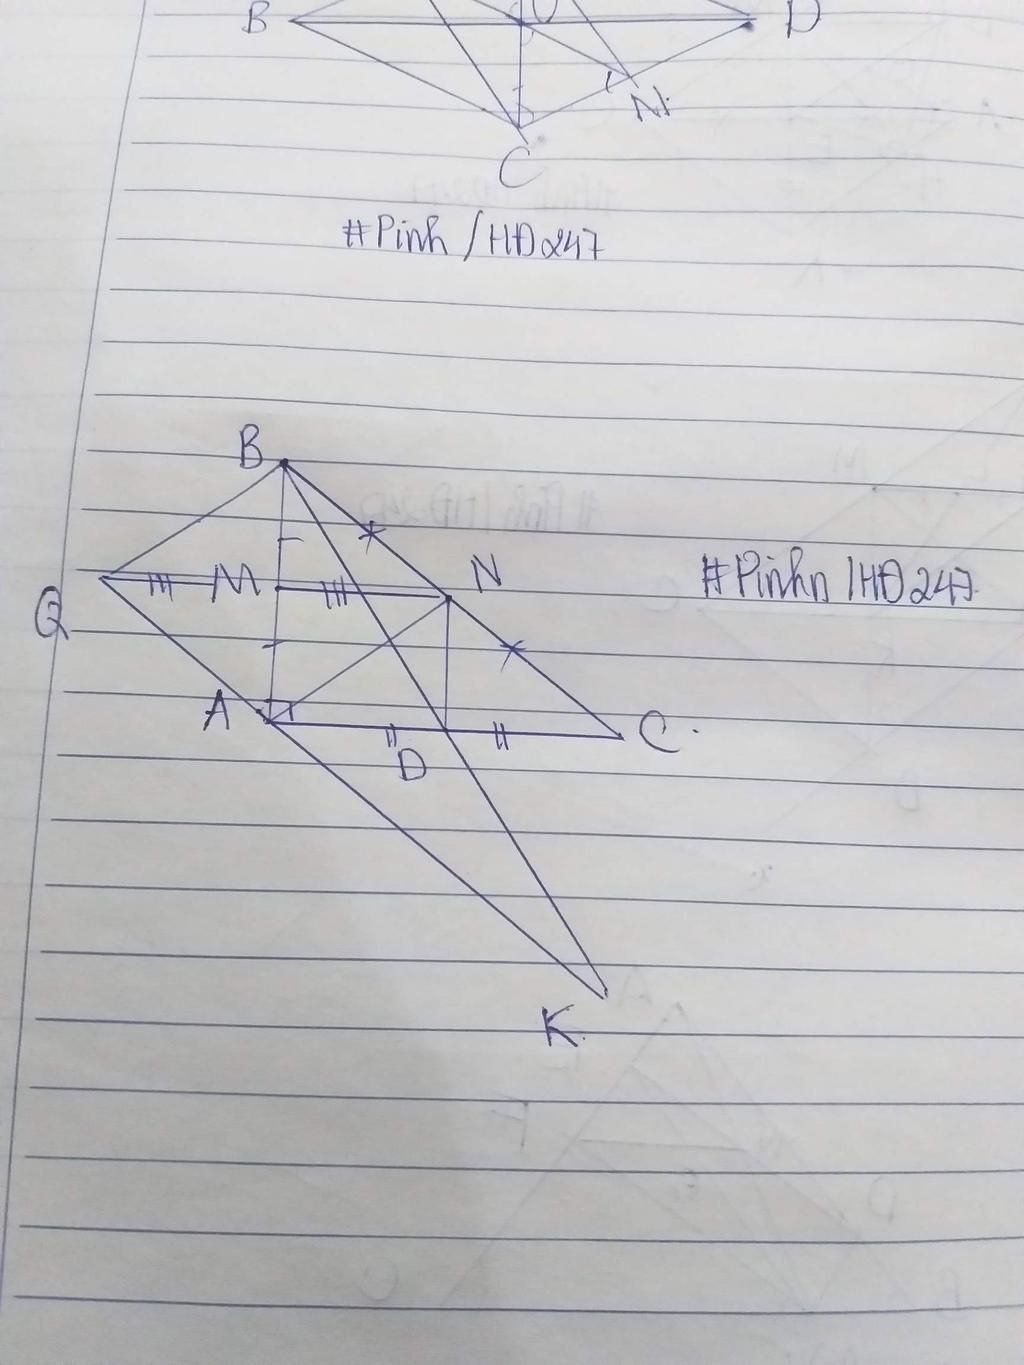 B
D
N
C
#Pinh/HĐ247
B
Q
M
N
#Pinhn/HĐ247
A
D
C
K